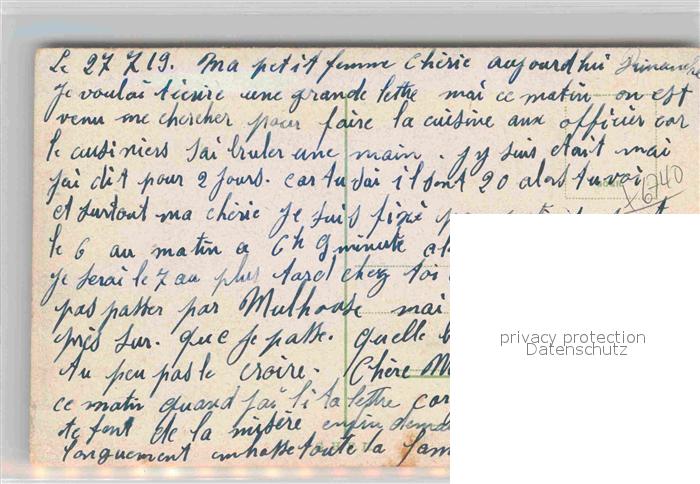 Le 27 7 19. Ma petit femme Chérie aujourdhui Dimanche
Je voulai t'écrire une grande lettre mai ce matin on est
venu me chercher pour faire la cuisine aux officier car
le cusiniers sai bruler une main. jy suis etait mai
jai dit pour 2 jours. car tu sai il sont 20 alors tu voi
X6740
et surtout ma chérie je suis fixé
le 6 au matin a 6h 9 minute
je serai le 7 au plus tard chez toi
pas passer par Mulhouse mai
près sur. que je passe. quelle
tu peu pas le croire. Chère
ce matin quand jai li ta lettre car
te font de la misère enfin
longuement embrasse toute la fam
privacy protection
Datenschutz